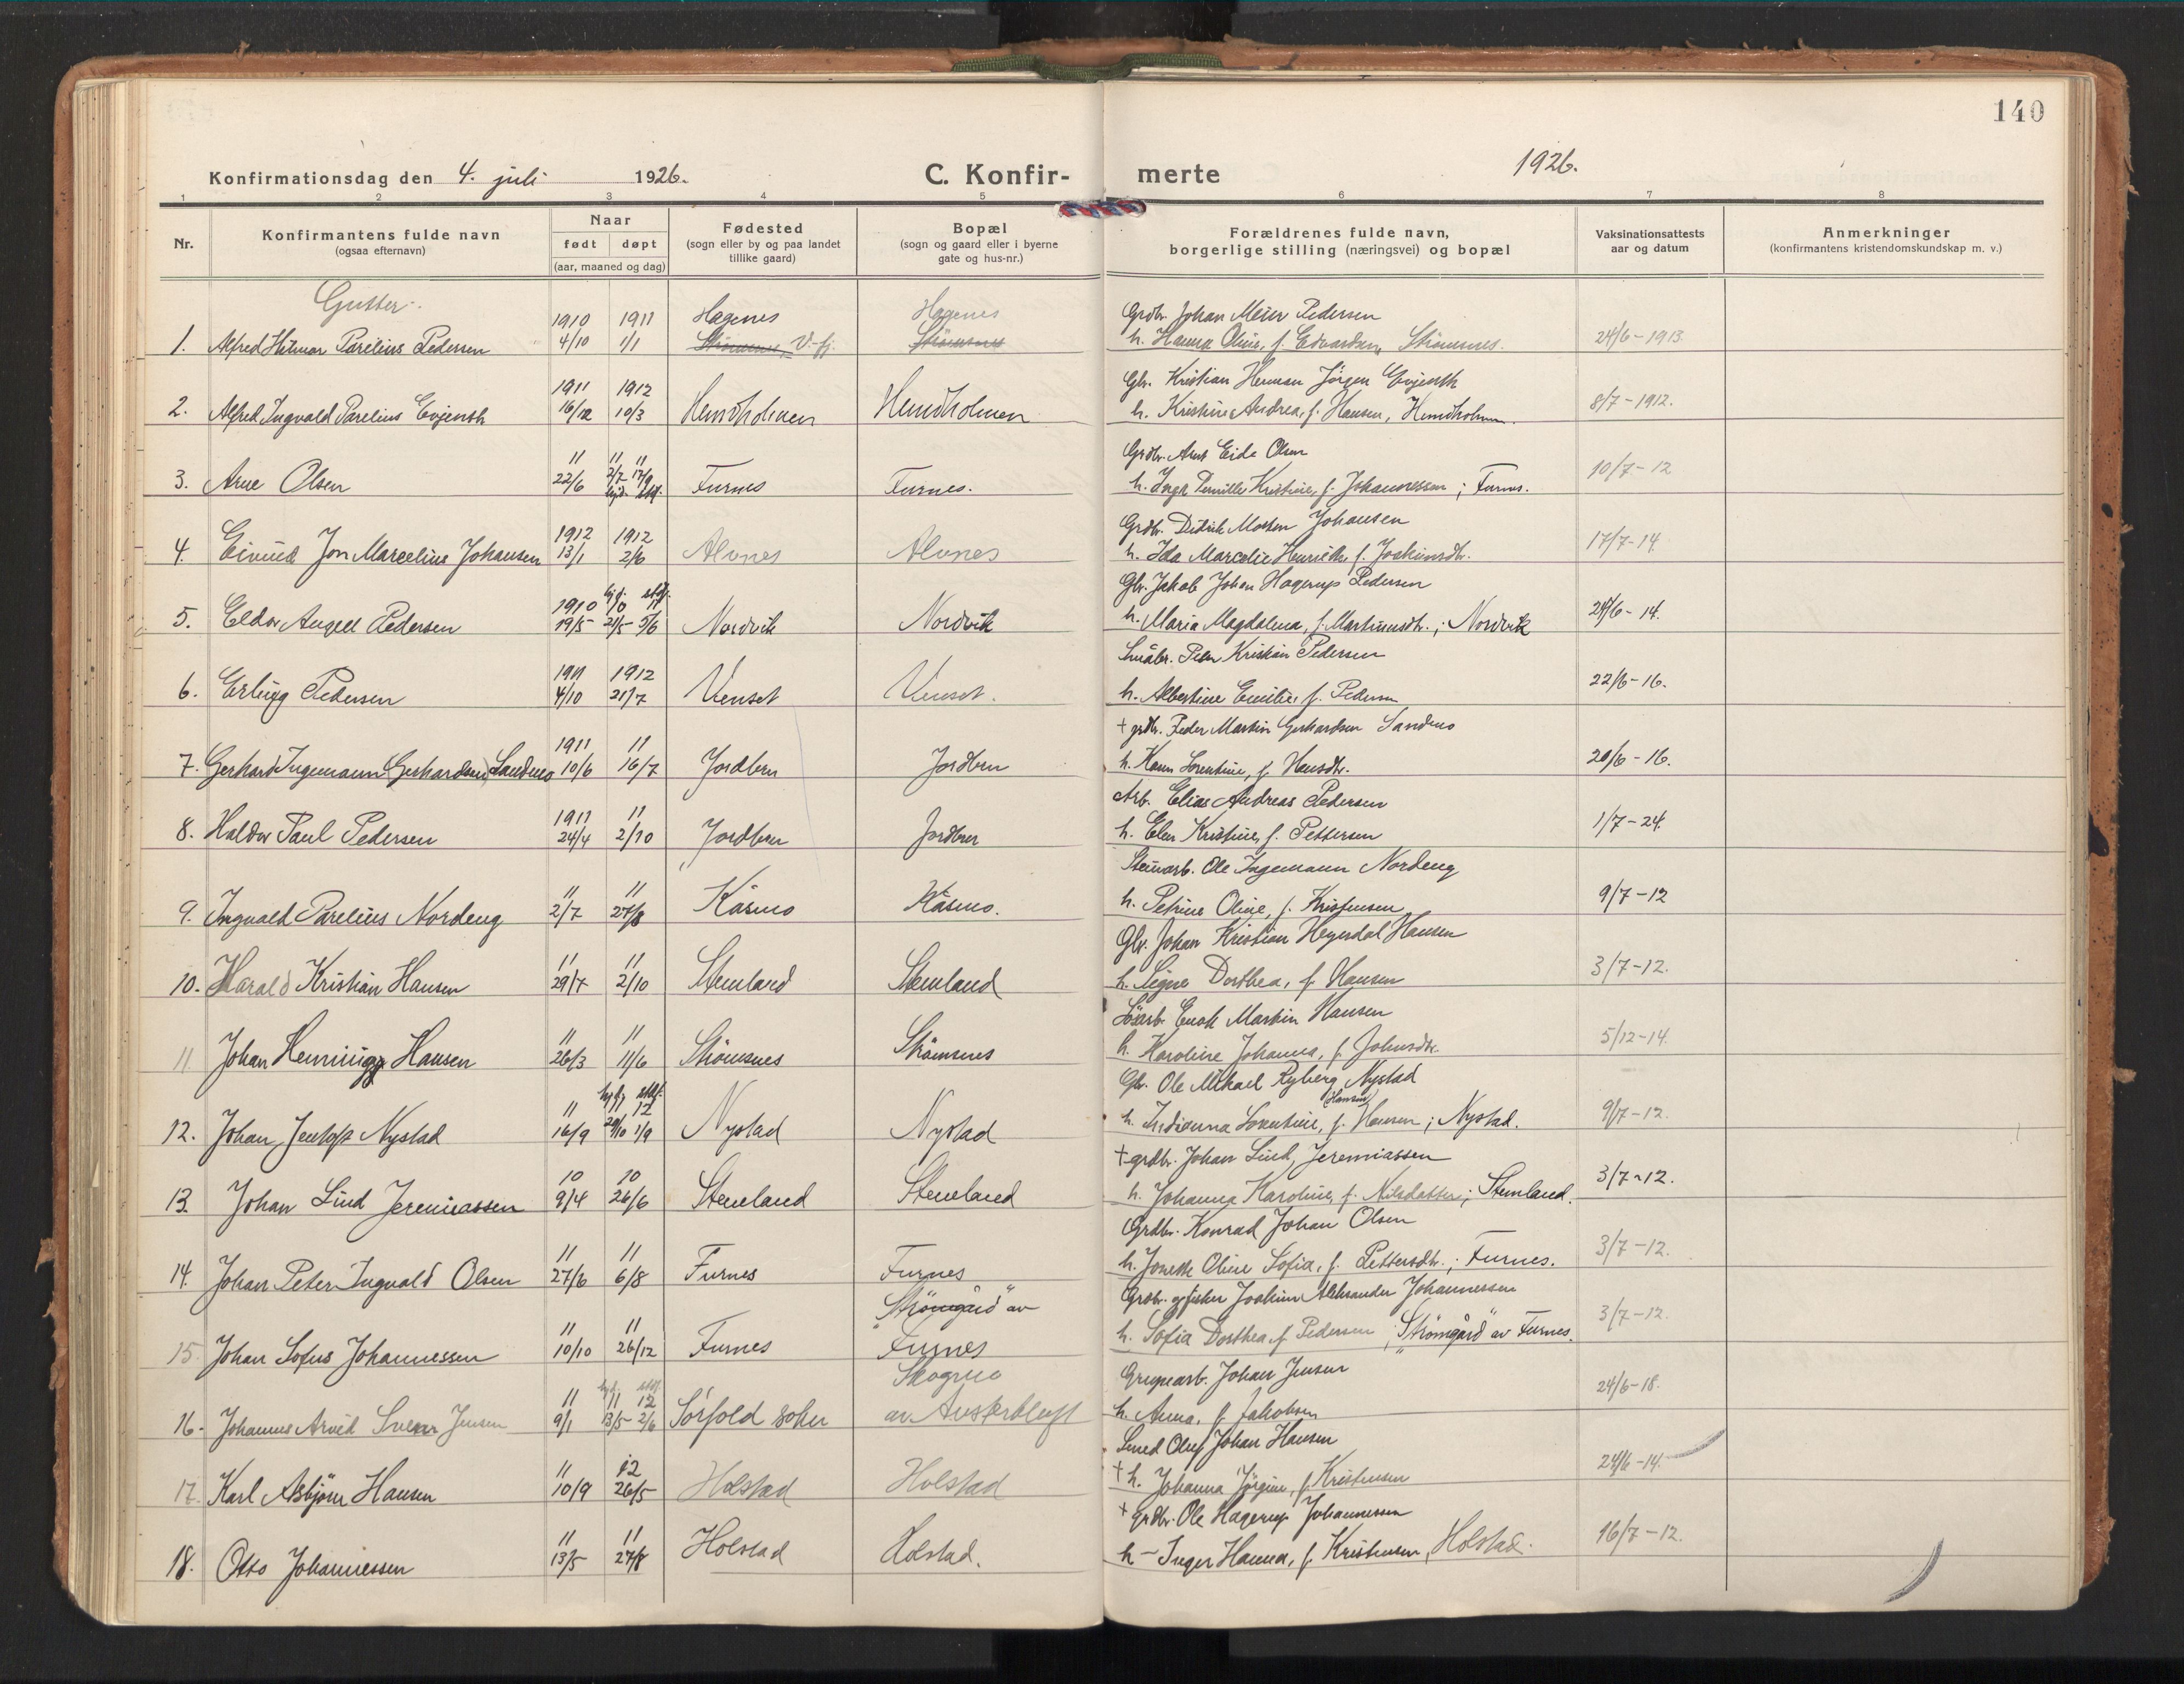 140
Konfirmationsdag den 4. juli 1926. C. Konfir- merte 1926.
1 2 3 4 5 6 7 8
Nr. Konfirmantens fulde navn (ogsaa efternavn) Naar født døpt (aar, maaned og dag) Fødested (sogn eller by og paa landet tillike gaard) Bopæl (sogn og gaard eller i byerne gate og hus-nr.) Forældrenes fulde navn, borgerlige stilling (næringsvei) og bopæl Vaksinationsattests aar og datum Anmerkninger (konfirmantens kristendomskundskap m. v.)
Gutter.
1910 1911 Hagenes Hagenes Grdbr. Johan Meier Pedersen
1. Alfred Hilmar Parelius Pedersen 4/10 1/1 Strömsnes V.fj. Strömsnes h. Hanna Oline, f. Edvardsen, Strömsnes. 24/6-1913.
1911 1912 Gbr. Kristian Herman Jörgen Evjenth
2. Alfred Ingvald Parelius Evjenth 16/12 10/3 Hundholmen Hundholmen h. Kristine Andrea, f. Hansen, Hundholmen. 8/7-1912.
11 11 11 Grdbr. Arnt Eide Olsen
3. Arne Olsen 22/6 2/7 17/9 Furnes Furnes. h. Inga Pernille Kristine, f. Johannessen; Furnes. 10/7-12
hjd. stf.
1912 1912 Grdbr. Didrik Morten Johansen
4. Eivind Jon Marcelius Johansen 13/1 2/6 Alvnes Alvnes h. Ida Marcelie Henrikke, f. Joakimsdtr. 17/7-14.
1910 hj.d. 10 stf. 11 Gbr. Jakob Johan Hagerup Pedersen
5. Eldor Angell Pedersen 19/5 21/5-5/6 Nordvik Nordvik h. Maria Magdalena, f. Martinusdtr.; Nordvik 24/6-14.
1911 1912 Småbr. Peder Kristian Pedersen
6. Erling Pedersen 4/10 21/7 Venset Venset. h. Albertine Emilie, f. Pedersen 22/6-16.
1911 11 † grdbr. Peder Martin Gerhardsen Sandmo
7. Gerhard Ingemann Gerhardsen Sandmo 10/6 16/7 Jordbru Jordbru h. Karen Lorentine, f. Hansdtr. 20/6-16.
1911 11 Arb. Elias Andreas Pedersen
8. Haldor Paul Pedersen 24/4 2/10 Jordbru Jordbru h. Elen Kristine, f. Pettersen 1/7-24.
11 11 Stenarb. Ole Ingemann Nordeng
9. Ingvald Parelius Nordeng 2/7 27/8 Kåsmo Kåsmo. h. Petrine Oline, f. Kristensen 9/7-12
11 11 Gbr. Johan Kristian Heyerdal Hansen
10. Harald Kristian Hansen 29/7 2/10 Stemland Stemland h. Signe Dorthea, f. Hansen 3/7-12.
11 11 Lösarb. Enok Martin Hansen
11 Johan Henningg Hansen 26/3 11/6 Strömsnes Strömsnes h. Karoline Johanna, f. Johnsdtr. 5/12-14.
11 hj.d. 11 stf. 12 Gbr. Ole Mikael Ryberg Nystad
12. Johan Jentoft Nystad 16/9 29/10 1/9 Nystad Nystad h. Indianna Lorentine, f. Hansen; Nystad. 9/7-12.
10 10 † grdbr. Johan Lind Jeremiassen
13. Johan Lind Jeremiassen 9/4 26/6 Stemland Stemland h. Johanna Karoline, f. Nilsdatter; Stemland. 3/7-12.
11 11 Grdbr. Konrad Johan Olsen
14. Johan Peter Ingvald Olsen 27/6 6/8 Furnes Furnes h. Jonette Oline Sofia, f. Pettersdtr.; Furnes. 3/7-12.
11 11 "Strömgård" av Grdbr. og fisker Joakim Aleksander Johannessen
15. Johan Sofus Johannessen 10/10 26/12 Furnes Furnes h. Sofia Dorthea f. Pedersen; "Strömgård" av Furnes. 3/7-12.
11 hj.d. 11 stf. 12 Skogmo Grupearb. Johan Jensen
16. Johannes Arvid Svenn Jensen 9/1 13/5-2/6 Sörfold sokn av Austerkleft h. Anna, f. Jakobsen 24/6-18.
11 12 Smed Oluf Johan Hansen
17. Karl Asbjörn Hansen 10/9 26/5 Holstad Holstad † h. Johanna Jörgine, f. Kristensen 24/6-14.
11 11 † grdbr. Ole Hagerup Johannessen
18. Otto Johannessen 13/5 27/8 Holstad Holstad. h - Inger Hanna, f. Kristensen, Holstad. 16/7-12.